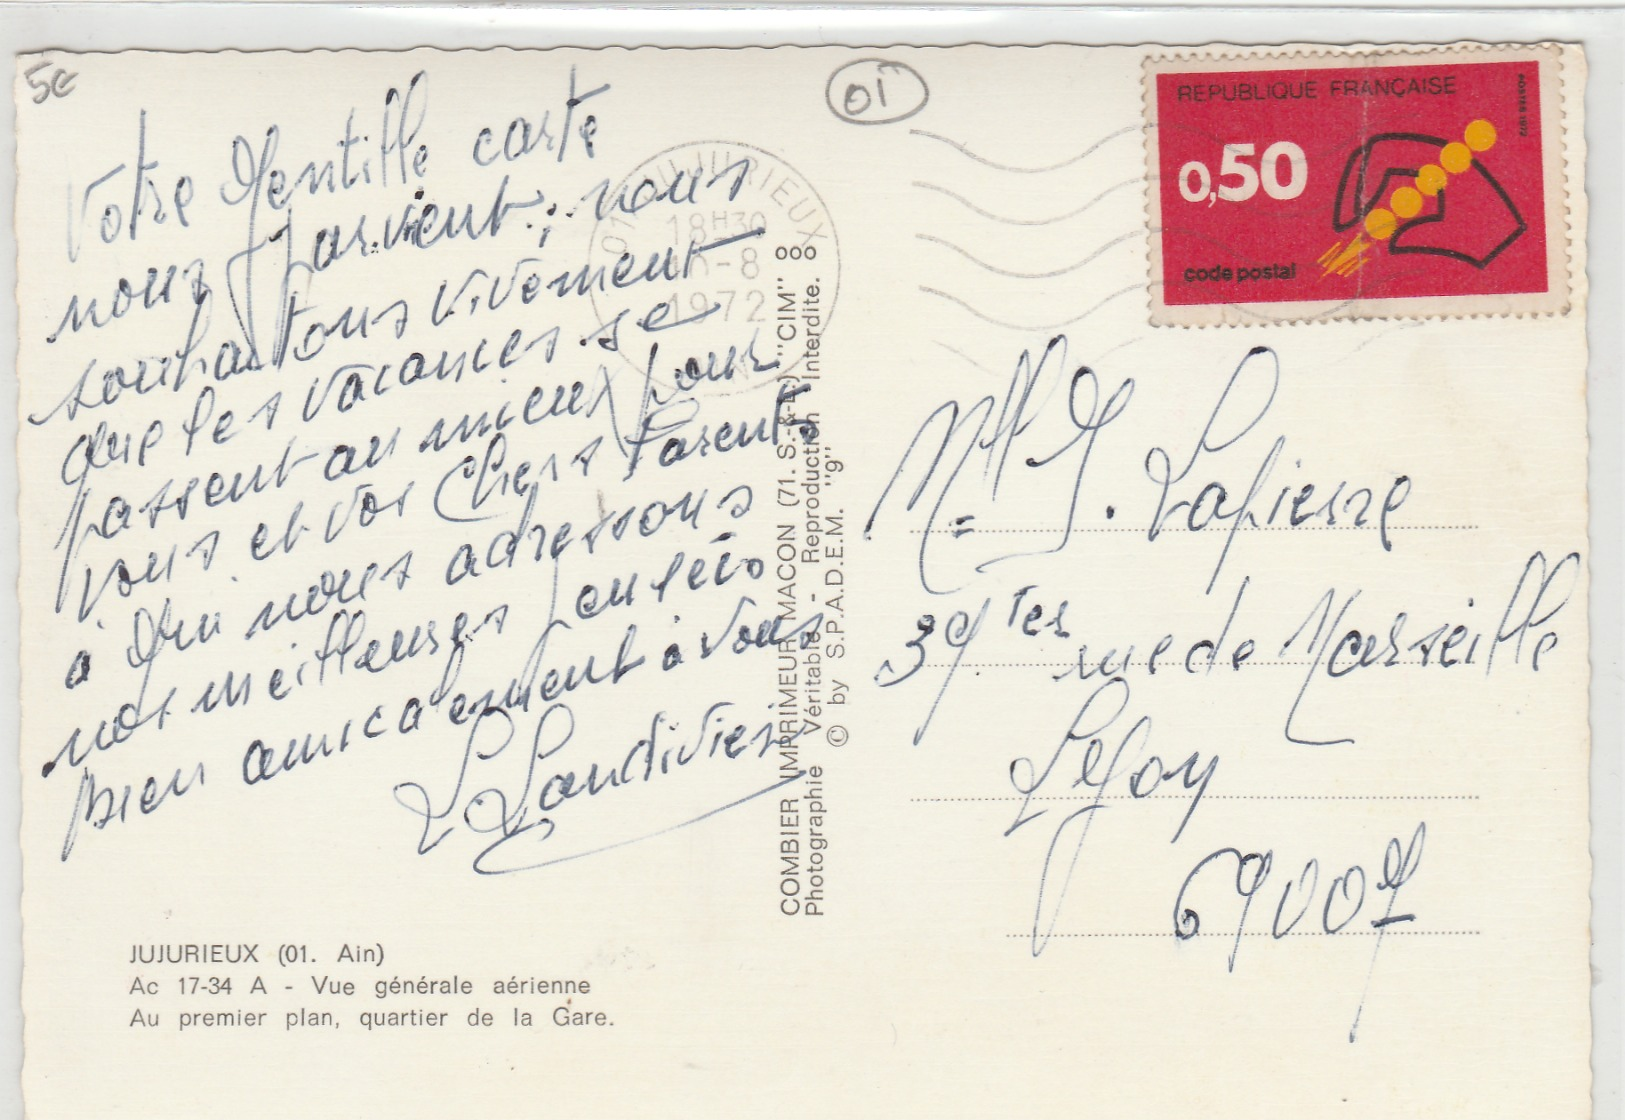 5€
01
Votre gentille carte
nous parvient; nous
souhaitons vivement
que les vacances se
passent au mieux pour
vous et vos chers Parents
à qui nous adressons
nos meilleures pensées
bien amicalement à vous
01 JUJURIEUX
18H30
-8
1972
AIN
REPUBLIQUE FRANÇAISE
POSTES 1972
0,50
code postal
COMBIER IMPRIMEUR MACON (71. S.-&-L.) "CIM"
Photographie Véritable - Reproduction Interdite.
© by S.P.A.D.E.M. "9"
Lapierre
39 Ter rue de Marseille
Lyon
69007
JUJURIEUX (01. Ain)
Ac 17-34 A - Vue générale aérienne
Au premier plan, quartier de la Gare.